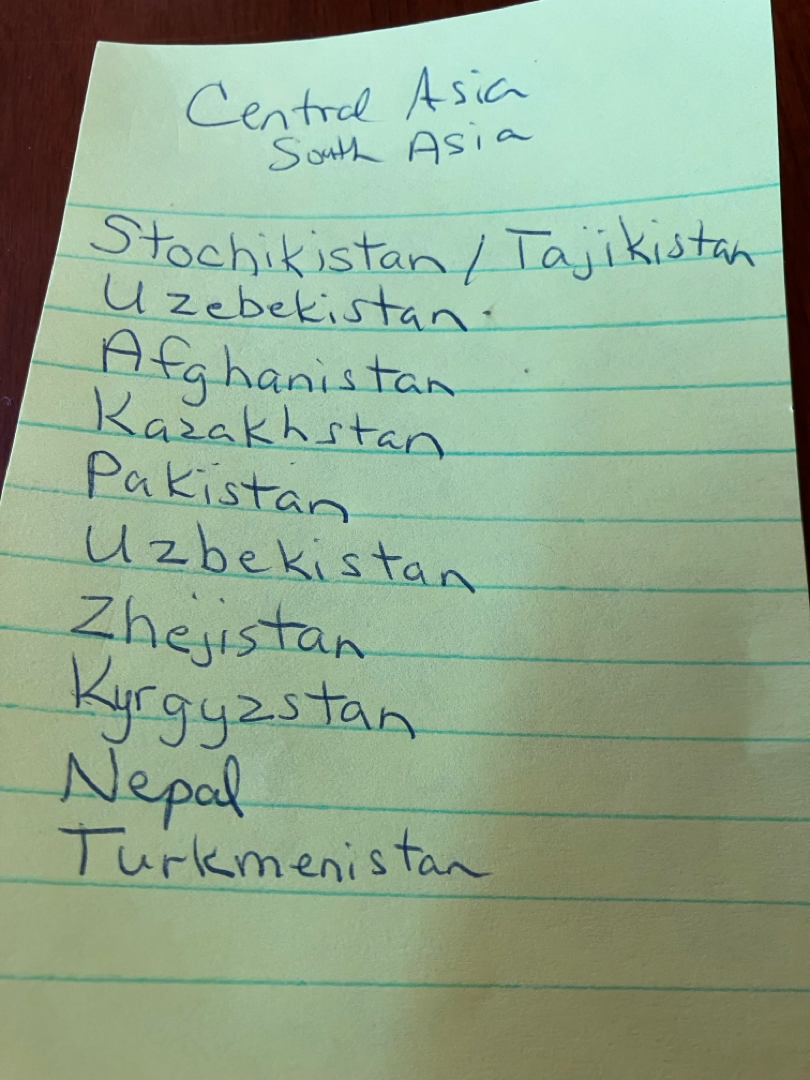 Central Asia
South Asia
Stochikistan / Tajikistan
Uzebekistan
Afghanistan
Kazakhstan
Pakistan
Uzbekistan
Zhejistan
Kyrgyzstan
Nepal
Turkmenistan